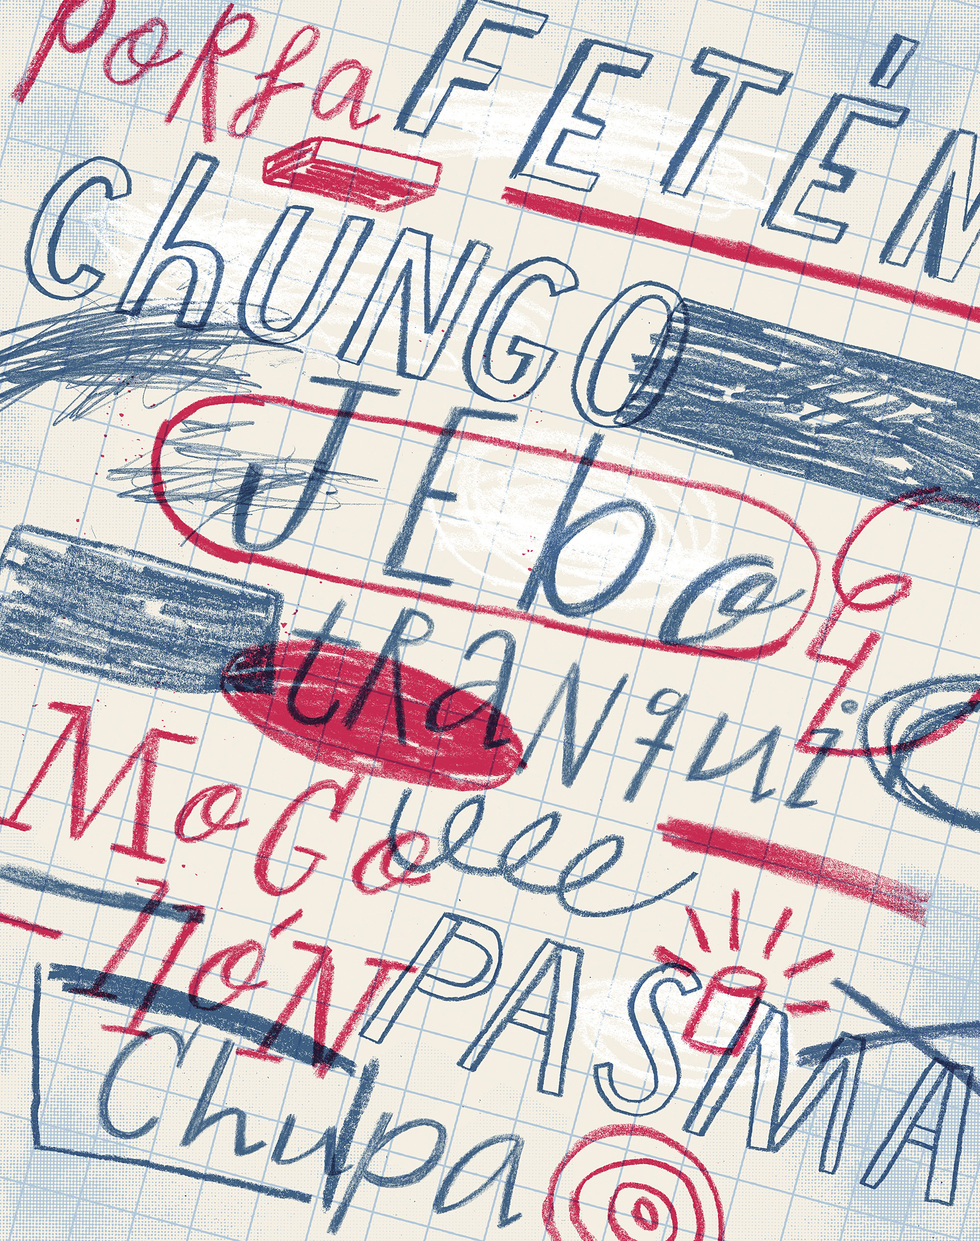 PoRfa FETÉN
ChUNGO
JEba
tRaNqui
MoGo
llóN PASMA
Chupa